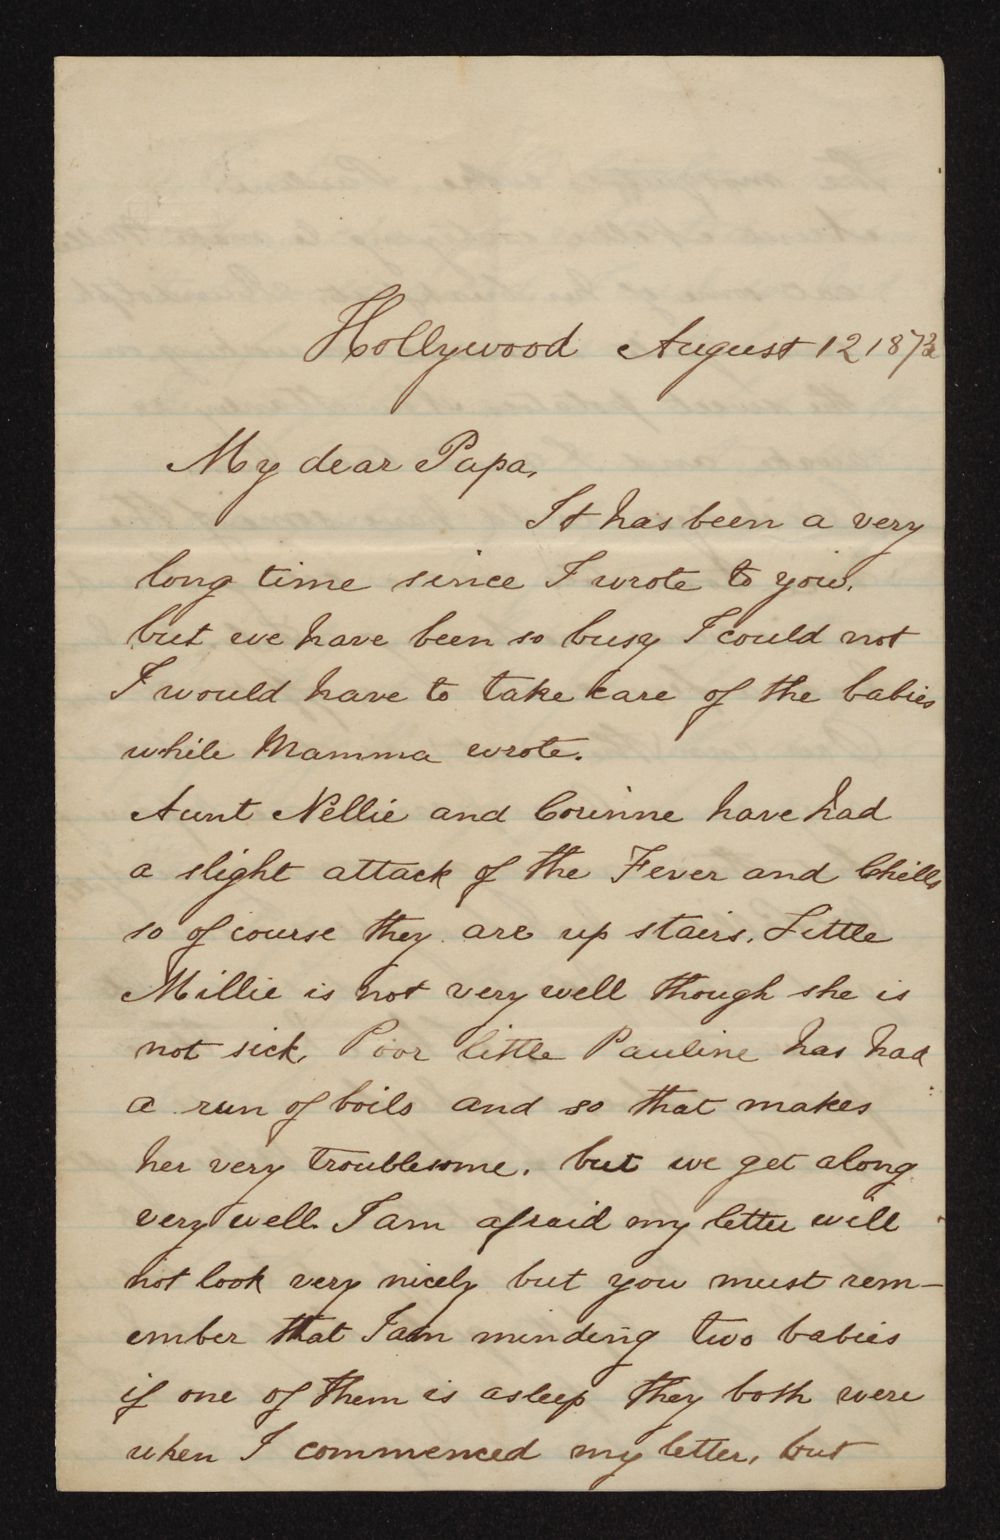 Hollywood August 12 187
My dear Papa,
It has been a very
long time since I wrote to you,
but we have been so busy I could not
I would have to take care of the babies
while Mamma wrote.
Aunt Nellie and Corinne have had
a slight attack of the Fever and Chills
so of course they are up stairs. Little
Millie is not very well though she is
not sick, Poor little Pauline has had
a run of boils and so that makes
her very troublesome. but we get along
very well. I am afraid my letter will
not look very nicely but you must rem-
ember that I am minding two babies
if one of them is asleep they both were
when I commenced my letter, but